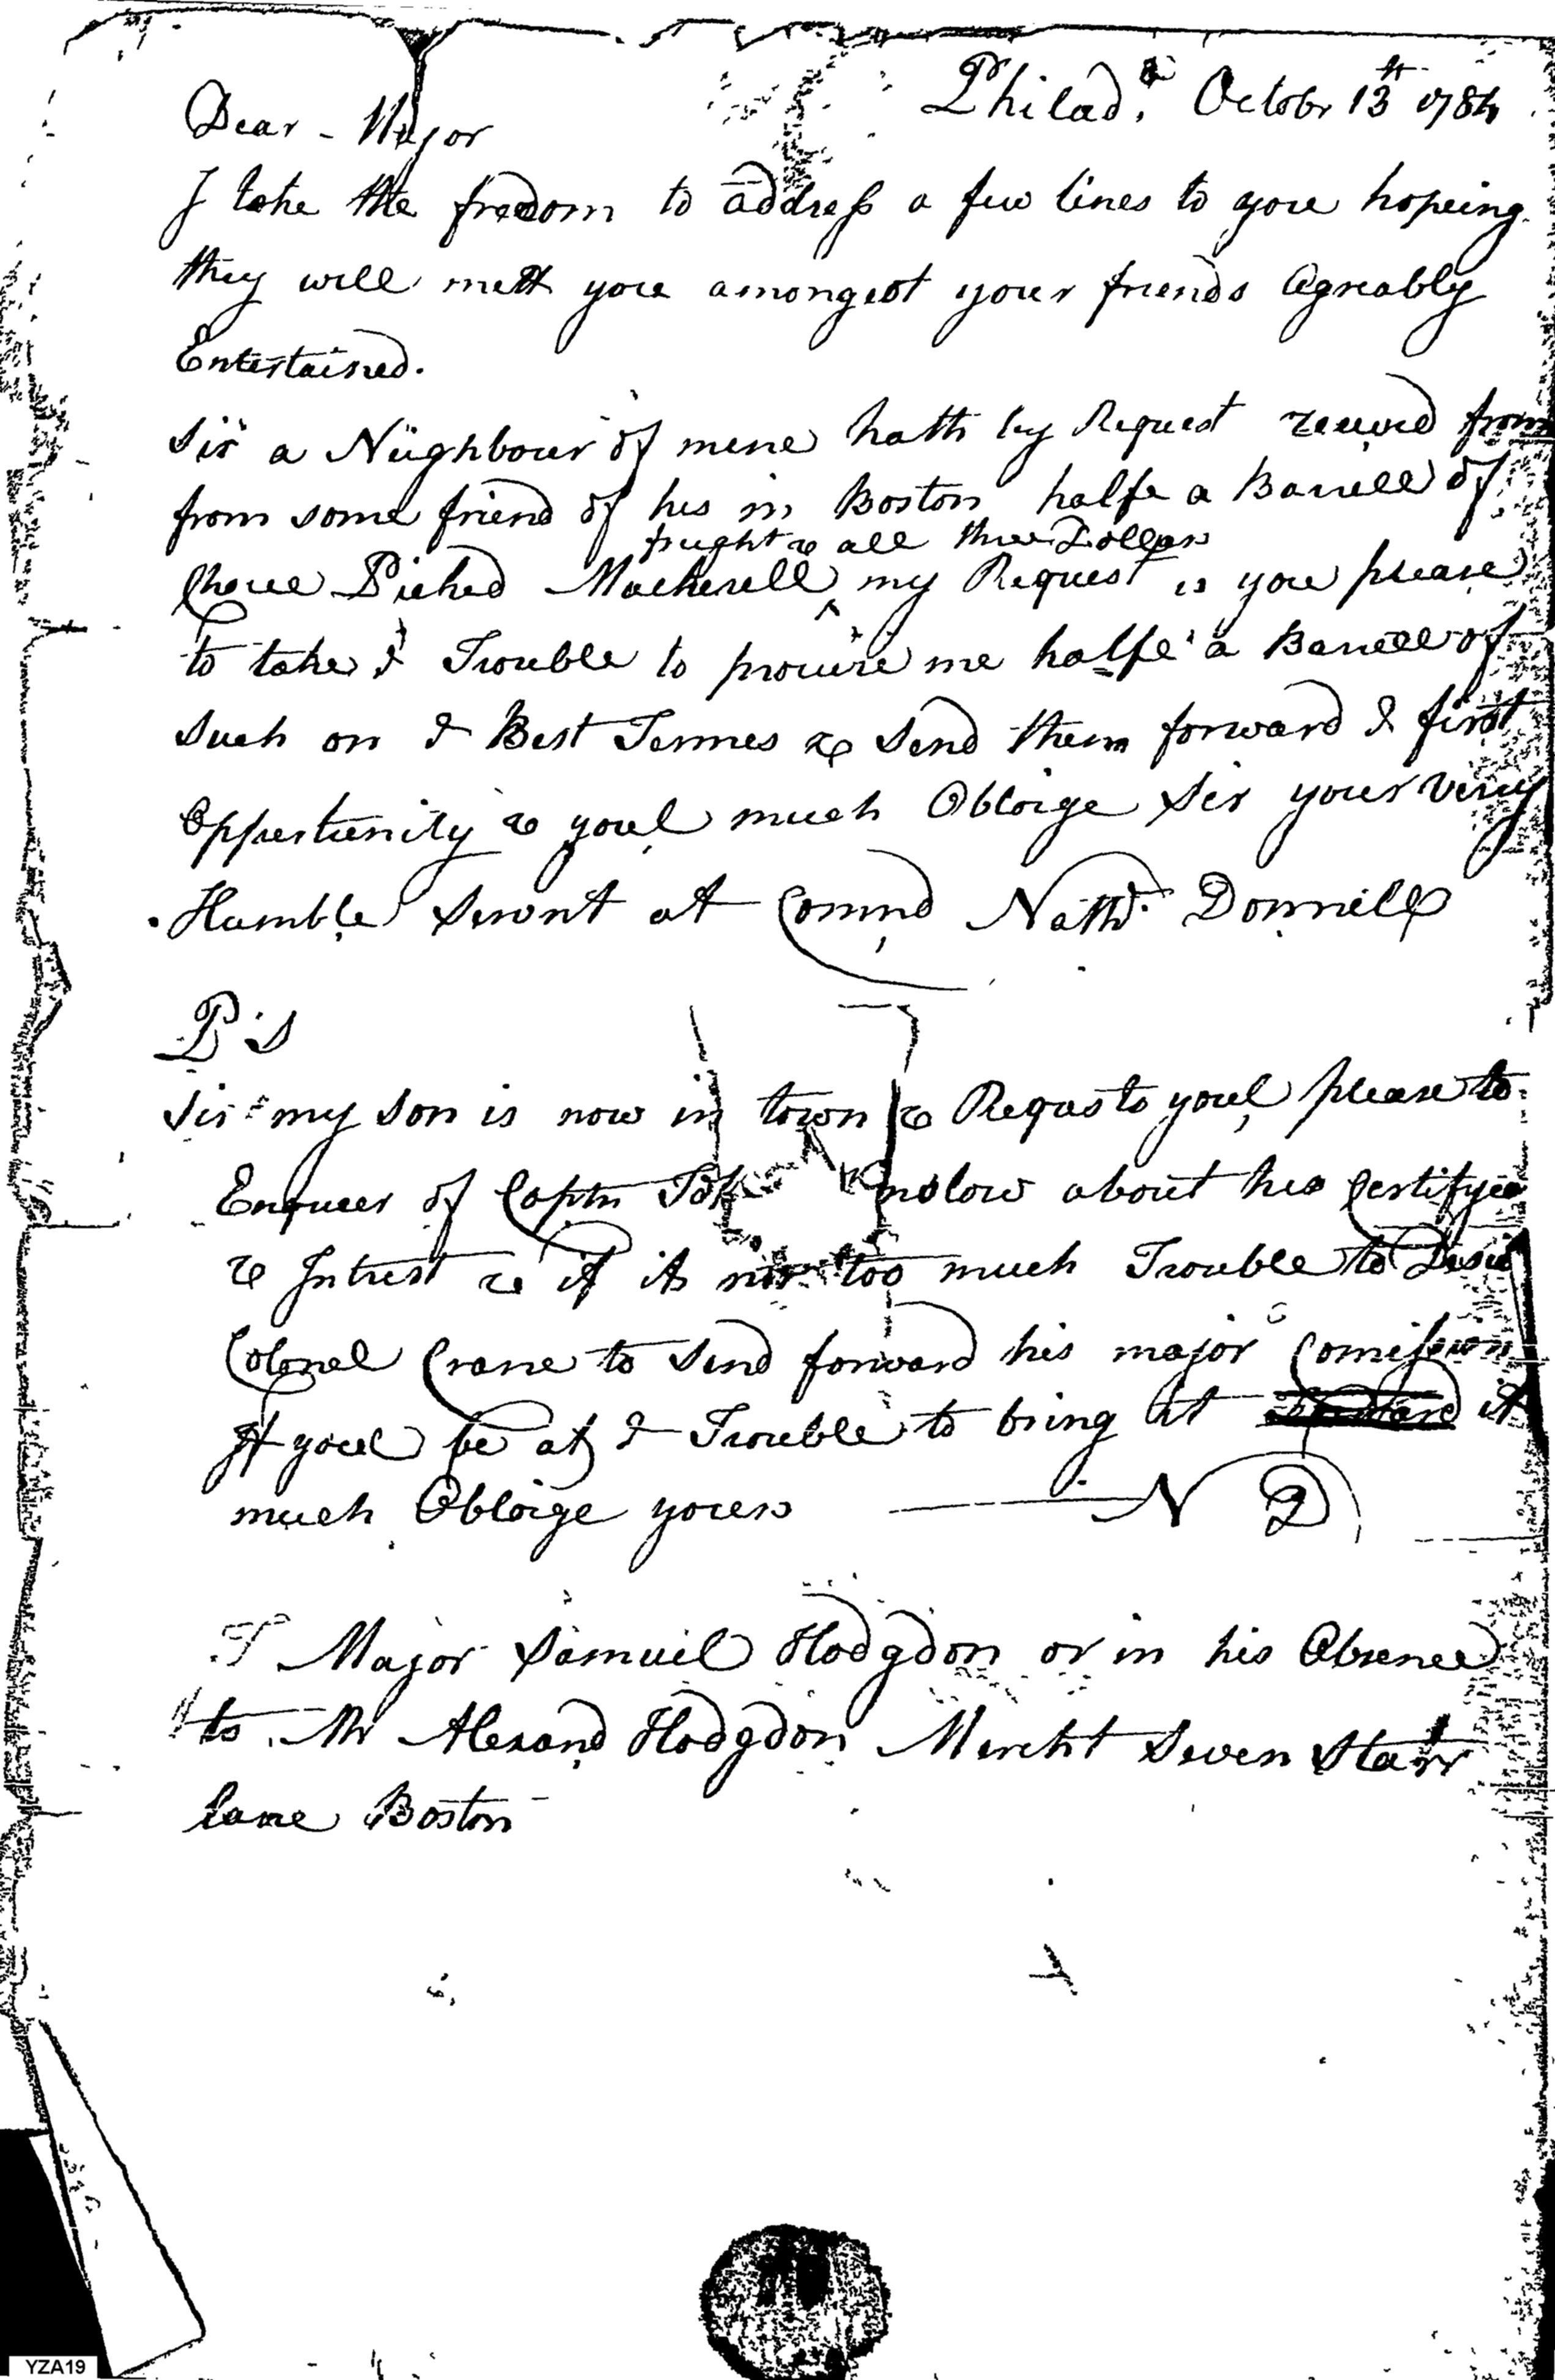 Philada. Octobr 13th 1784
Dear - Major
I take the freedom to address a few lines to you hopeing
they will mett you amongest your friends Agreably
Entertained.
Sir a Neighbour of mine hath by Request receved from
from some friend of his in Boston halfe a Barrell of
freight & all three Dollers
Choice Picked Mackerell ^ my Request is you please
to take & Trouble to procure me halfe a Barrell of
such on & Best Termes & Send them forward & first
Oppertunity & youl much Obloige Sir your very
Humble Servnt at Comnd Nathl. Donnell
P S
Sir my Son is now in town & Requests youl please to
Enqueer of Captn nslow about his Certifyca
& Intrest & if its not too much Trouble to Desire
Colonel Crane to Send forward his major Comission
If youl be at & Trouble to bring it it
much Obloige yours N D
T Major Samuel Hodgdon or in his Absence
to Mr Alexand Hodgdon Mercht Seven Starr
lane Boston
YZA19